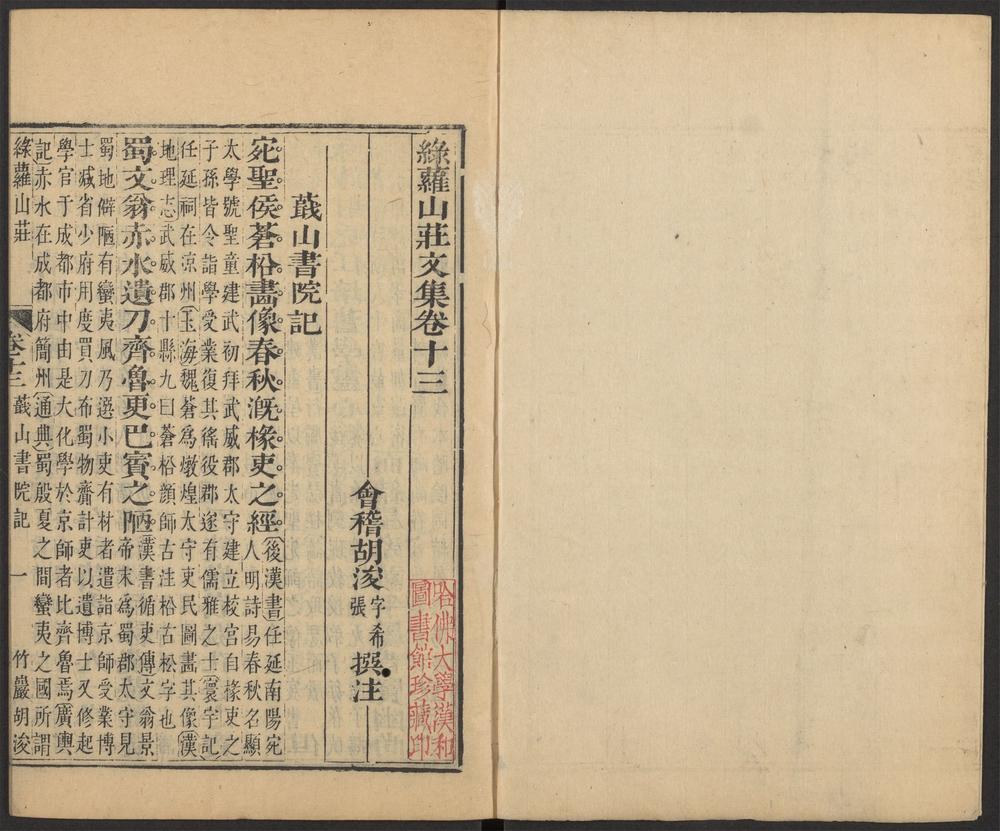 綠蘿山莊文集卷十三
哈佛大學漢和
圖書館珍藏印
會稽胡浚字希張撰注
蕺山書院記
宛聖侯蒼㮤畵像春秋漑椽吏之經後漢書任延南陽宛
人明詩易春秋名顯
太學號聖童建武初拜武威郡太守建立校宮自椽吏之
子孫皆令詣學受業復其徭役郡遂有儒雅之士寰宇記
任延祠在涼州玉海魏蒼爲燉煌太守吏民圖畵其像漢
地理志武威郡十縣九曰蒼㮤顏師古注㮤古松字也
蜀文翁赤水遺刀齊魯更巴賨之陋漢書循吏傳文翁景
帝末爲蜀郡太守見
蜀地僻陋有蠻夷風乃選小吏有材者遣詣京師受業博
士減省少府用度買刀布蜀物齎計吏以遺博士又修起
學官于成都市中由是大化學於京師者比齊魯焉廣輿
記赤水在成都府簡州通典蜀殷夏之間蠻夷之國所謂
綠蘿山莊 卷十三 蕺山書院記 一 竹巖胡浚